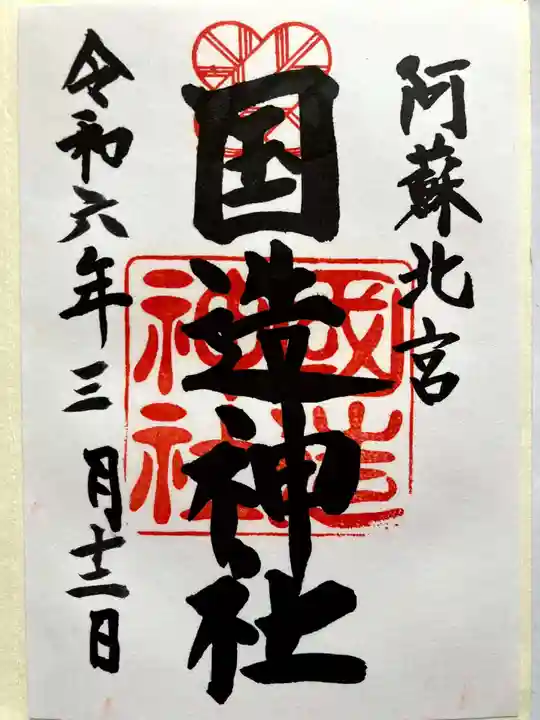 阿蘇北宮
国造神社
國造
神社
令和六年三月十二日